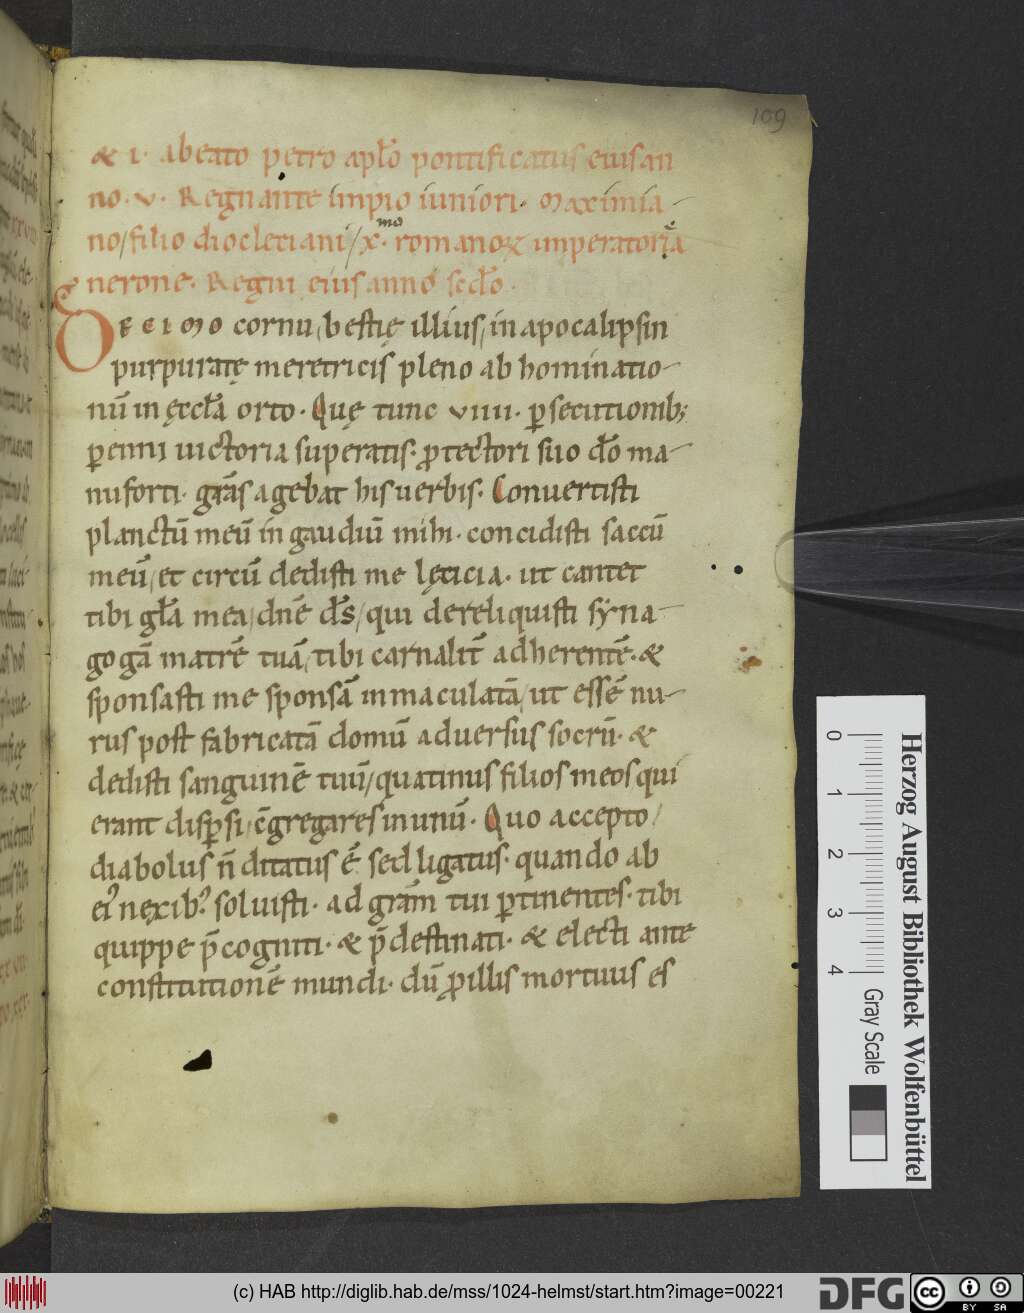 109
& i· abeato petro apl̄o pontificatus eiusan
no· v· Regnante impio iuniori· maximia-
no/filio diocletiani/x·mo romanoꝝ imperatori a
nerone· Regni eius anno scd̄o·
Decimo cornu, bestię illius, in apocalipsin
purpuratę meretricis pleno abhominatio-
nū in ęccl̄a orto· Quę tunc viiii· ꝑsecutionib;
ꝑenni uictoria superatis· ꝓtectori suo dō ma-
nuforti· grās agebat his uerbis· Conuertisti
planctū meū in gaudiū mihi· concidisti saccū
meū, et circū dedisti me lęticia· ut cantet
tibi gl̄a mea, dn̄e ds̄, qui dereliquisti syna-
gogā matrē tuā, tibi carnalit̄ adherentē· &
sponsasti me sponsā inmaculatā, ut essē nu-
rus post fabricatā domū aduersus socrū· &
dedisti sanguinē tuū, quatinus filios meos qui
erant disꝑsi, c̄gregares inunū· Quo accepto,
diabolus n̄ ditatus ē sed ligatus· quando ab
ei' nexib' soluisti· ad grām tui ꝑtinentes· tibi
quippe p̄cogniti· & p̄destinati· & electi ante
constitutionē mundi· dū ꝓ illis mortuus es
0 1 2 3 4
Gray Scale
Herzog August Bibliothek Wolfenbüttel
(c) HAB http://diglib.hab.de/mss/1024-helmst/start.htm?image=00221
DFG
cc BY SA